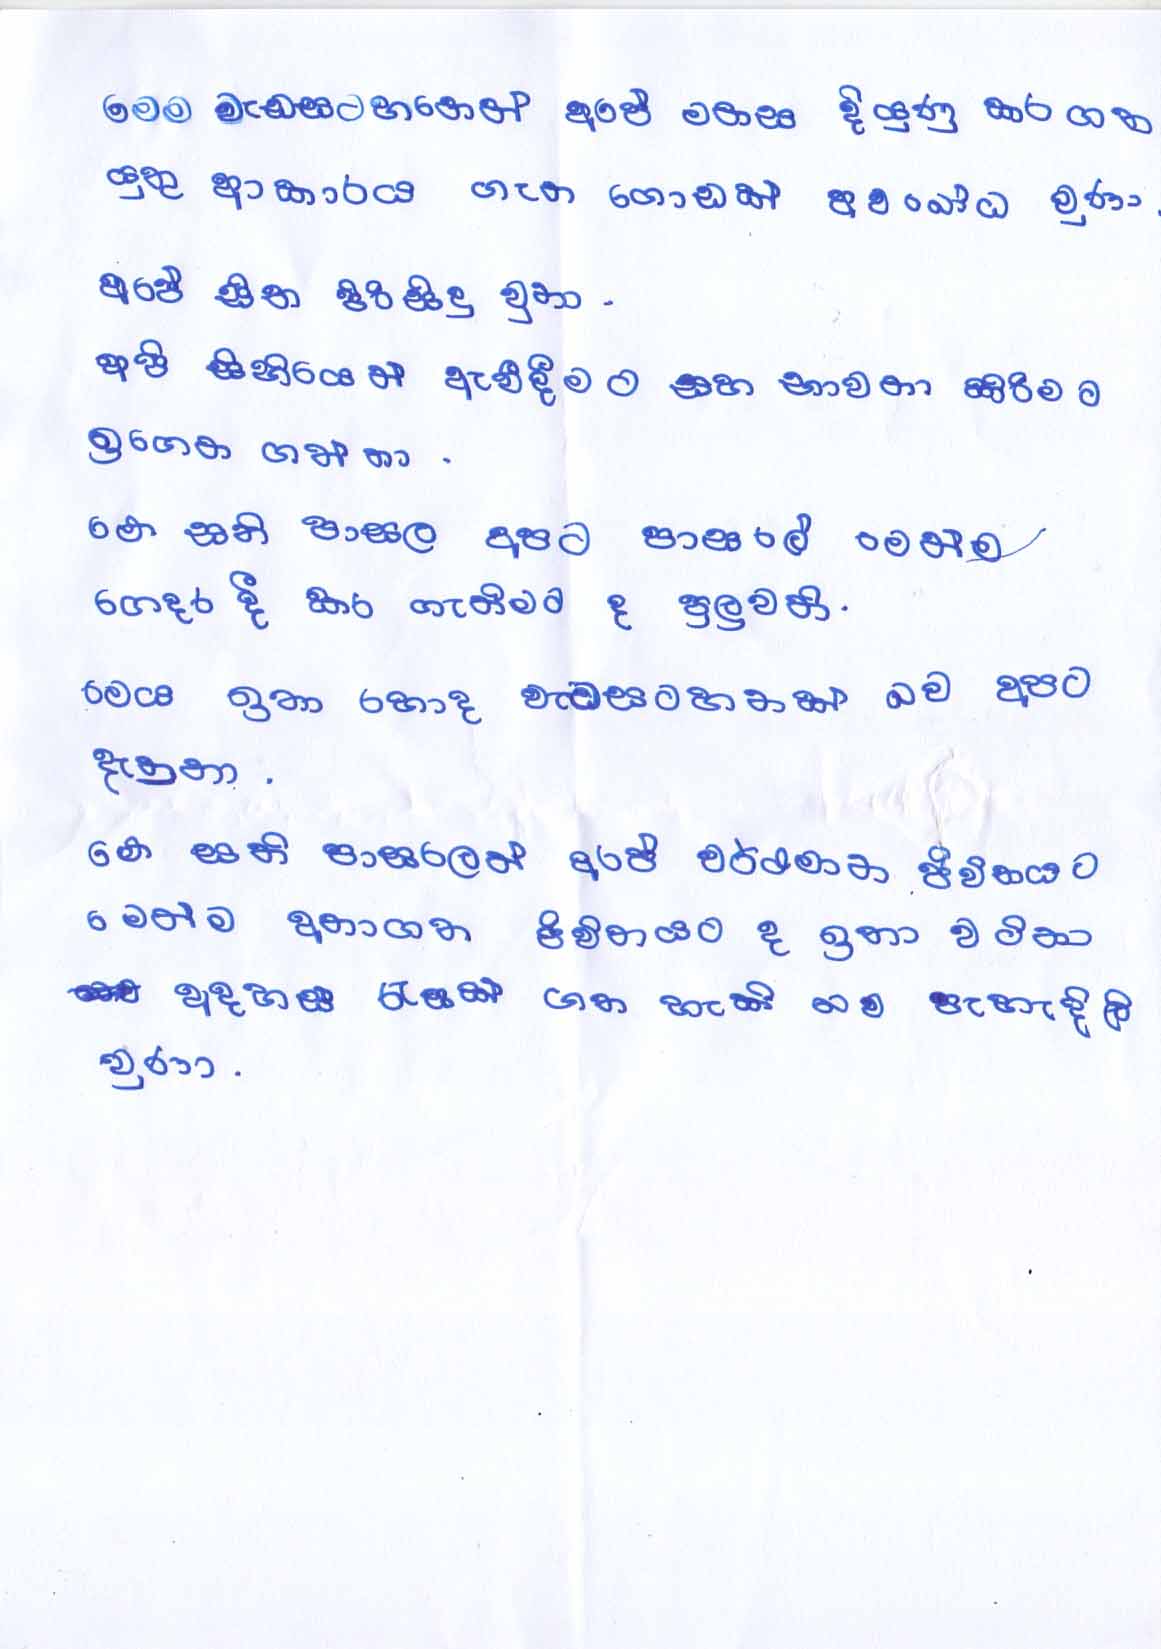 මෙම වැඩසටහනෙන් අපේ මනස දියුණු කර ගත
යුතු ආකාරය ගැන ගොඩක් අවබෝධ වුණා.
අපේ සිත පිරිසිදු වුනා.
අපි සිහියෙන් ඇවිදීමට සහ භාවනා කිරීමට
ඉගෙන ගත්තා.
මේ සති පාසල අපට පාසලේ මෙන්ම
ගෙදර දී කර ගැනීමට ද පුලුවනි.
මෙය ඉතා හොද වැඩසටහනක් බව අපට
දැනුනා.
මේ සති පාසලෙන් අපේ වර්තමාන ජීවිතයට
මෙන්ම අනාගත ජීවිතයට ද ඉතා වටිනා
අදහස් රැසක් ගත හැකි බව පැහැදිලි
වුණා.